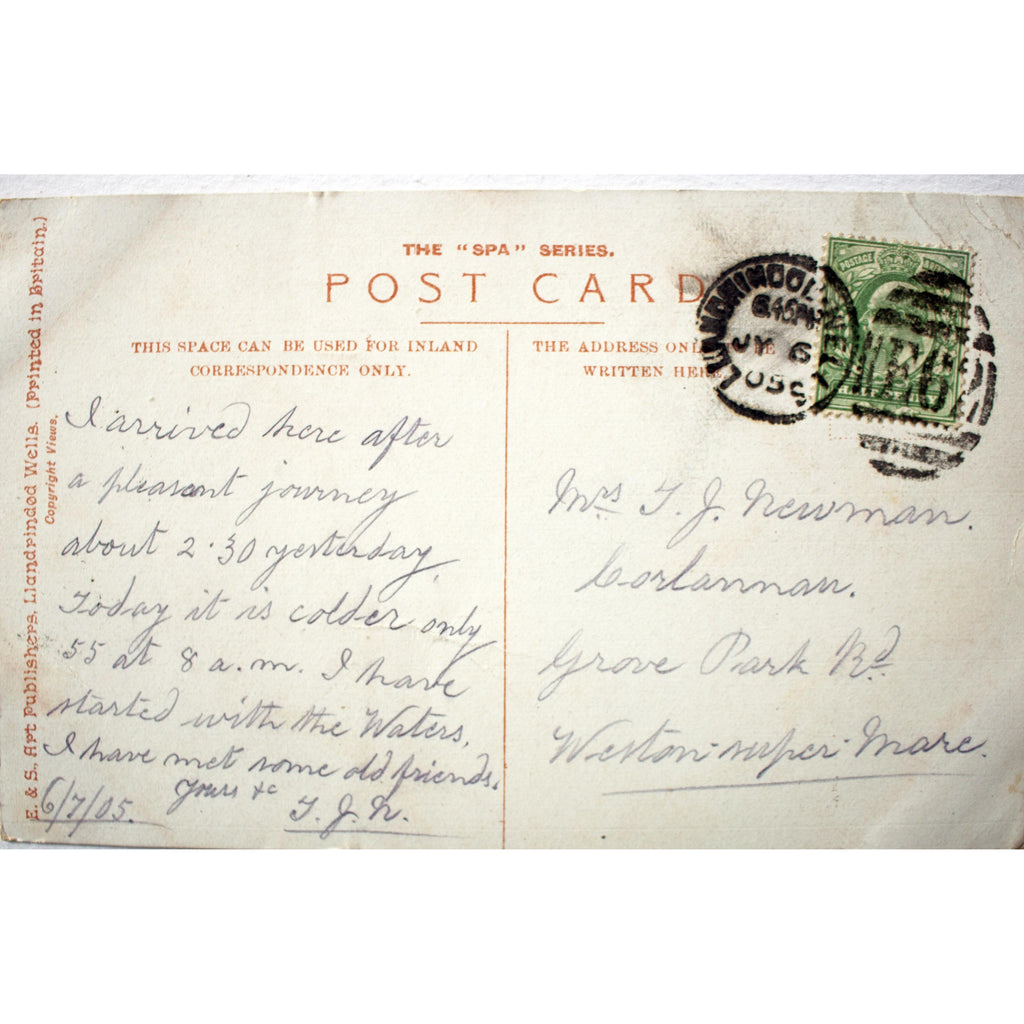 THE "SPA" SERIES.
POST CARD
THIS SPACE CAN BE USED FOR INLAND
CORRESPONDENCE ONLY.
THE ADDRESS ONLY
WRITTEN HERE
E. & S., Art Publishers, Llandrindod Wells. (Printed in Britain.)
Copyright Views.
I arrived here after
a pleasant journey
about 2.30 yesterday.
Today it is colder only
55 at 8 a.m. I have
started with the Waters.
I have met some old friends.
Yours &c
6/7/05. T. J. N.
POSTAGE
LLANDRINDOD WELLS
6.45PM
JY 6
05
Mrs T. J. Newman.
Corlannau.
Grove Park Rd
Weston-super-Mare.